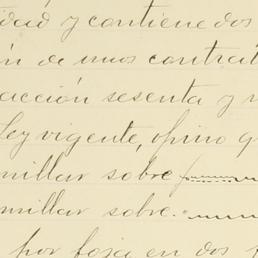 idad y contiene dos
ón de unos contrat
acción sesenta y
Ley vigente, opino q
millar sobre
millar sobre.
por foja en dos